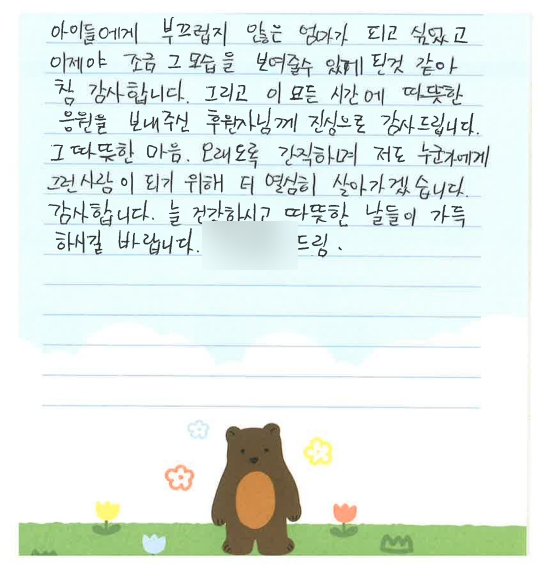 아이들에게 부끄럽지 않은 엄마가 되고 싶었고
이제야 조금 그 모습을 보여줄수 있게 된것 같아
참 감사합니다. 그리고 이 모든 시간에 따뜻한
응원을 보내주신 후원자님께 진심으로 감사드립니다.
그 따뜻한 마음. 오래도록 간직하며 저도 누군가에게
그런 사람이 되기 위해 더 열심히 살아가겠습니다.
감사합니다. 늘 건강하시고 따뜻한 날들이 가득
하시길 바랍니다. 드림.